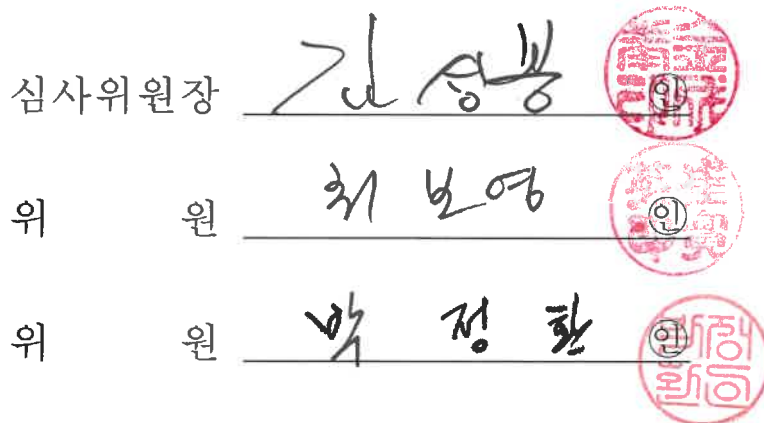 심사위원장 김 상봉 인
위 원 최 보영 인
위 원 박 정환 인